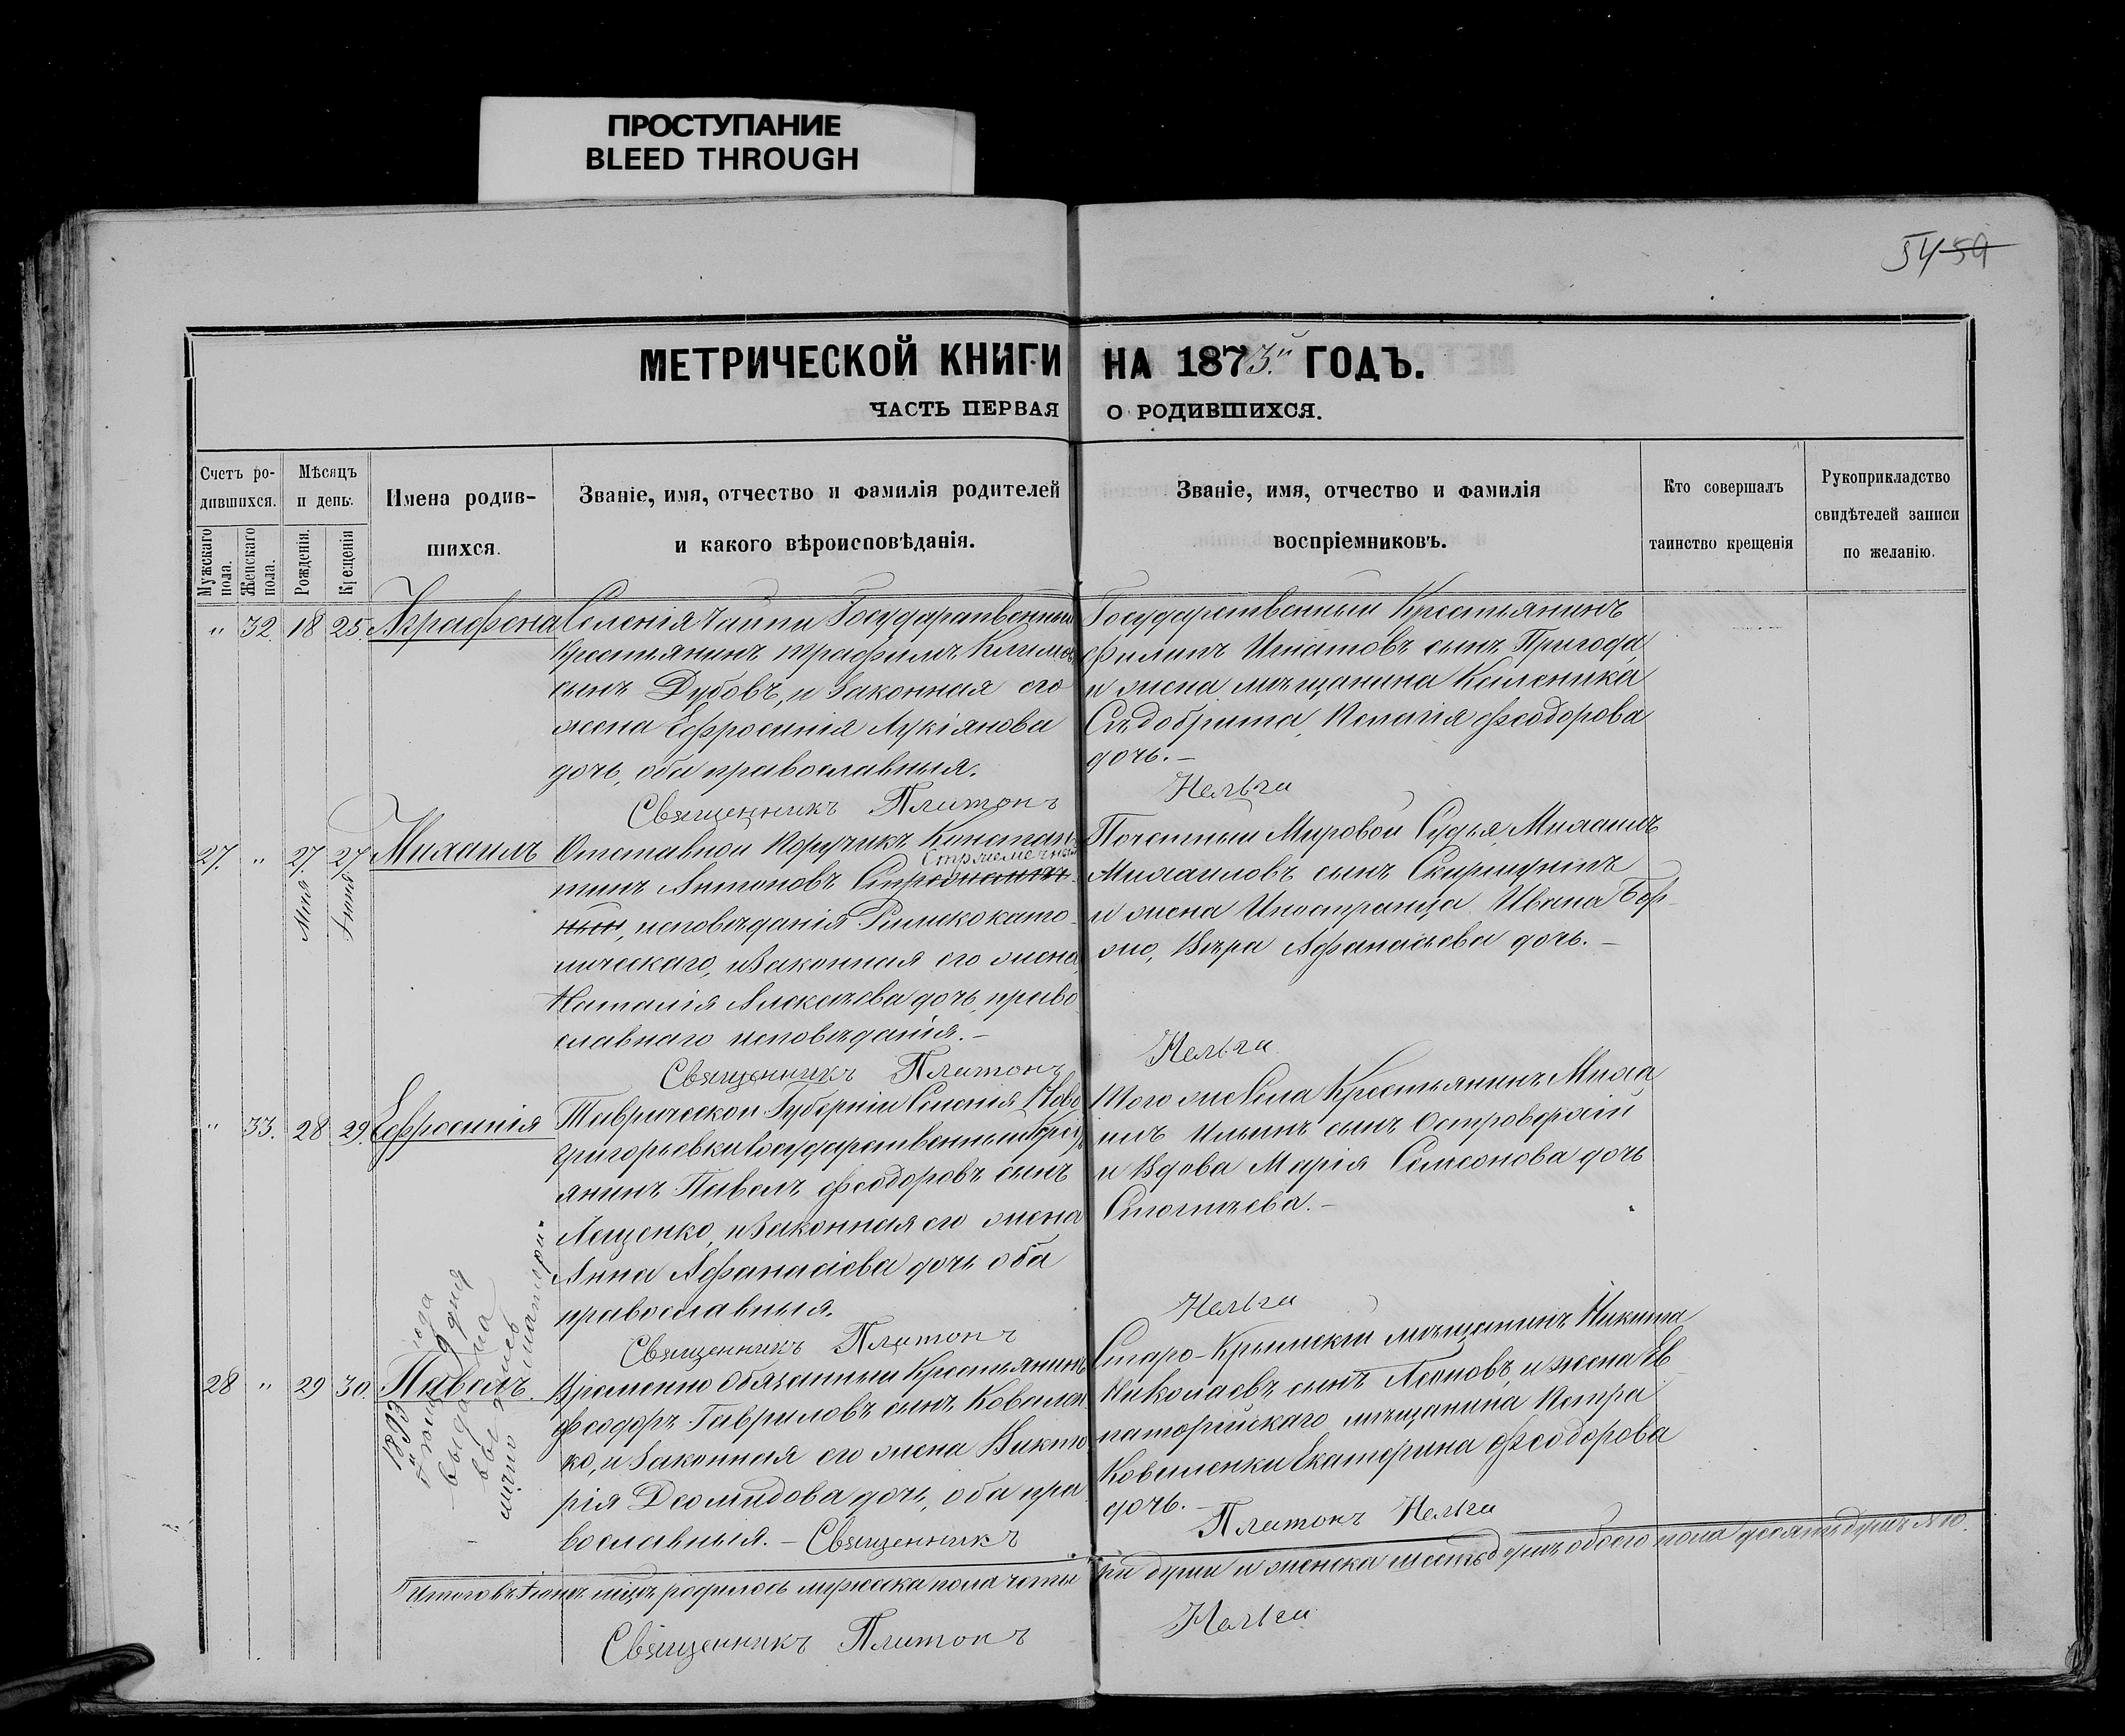 ПРОСТУПАНИЕ
BLEED THROUGH
54 59
МЕТРИЧЕСКОЙ КНИГИ НА 1873й ГОДЪ.
ЧАСТЬ ПЕРВАЯ О РОДИВШИХСЯ.
Счетъ ро-
дившихся.
Мужскаго пола.
Женскаго пола.
Мѣсяцъ
и день.
Рожденія.
Крещенія
Имена родив-
шихся.
Званіе, имя, отчество и фамилія родителей
и какого вѣроисповѣданія.
Званіе, имя, отчество и фамилія
воспріемниковъ.
Кто совершалъ
таинство крещенія
Рукоприкладство
свидѣтелей записи
по желанію.
" 32. 18 25. Аграфена
Селенія Чаипи Государственный
Крестьянинъ Трофимъ Климовъ
сынъ Дубовъ, и законная его
жена Ефросинія Лукіянова
дочь, оба православныя.
Священникъ Платонъ
Государственный Крестьянинъ
Филипъ Игнатовъ сынъ Пригода
и жена мѣщанина Каленика
Пелагія Феодорова
дочь.-
Нельга
27. " 27. 27 Михаилъ
Мая Іюня
Отставной Поручикъ Констан-
Стржемечный
тинъ Антоновъ
ный, исповѣданія Римскокато-
лическаго, и законная его жена
Наталія Алексѣева дочь, право-
славнаго исповѣданія.-
Священникъ Платонъ
Почетный Мировой Судья, Михаилъ
Михаиловъ сынъ Скирмунтъ
и жена Иностранца Ивана Бер-
же, Вѣра Афанасьева дочь.-
Нельга
" 33. 28 29. Ефросинія
Таврической Губерніи Селенія Ново
григорьевки Государственный Крестъ
янинъ Павелъ Феодоровъ сынъ
Лещенко, и законная его жена
Анна Афанасіева дочь оба
православныя.
Священникъ Платонъ
Того же Села Крестьянинъ Миха
илъ Ильинъ сынъ Островерхій
и Вдова Марія Семеонова дочь
Нельга
28 " 29 30. Павелъ.
1893 года
Іюня 9 дня
выдана
выпись
мѣтно матери.
Временно Обязанный Крестьянинъ
Феодоръ Гавриловъ сынъ Ковален
ко, и законная его жена Викто-
рія Деомидова дочь, оба пра
вославныя. - Священникъ
Старо-Крымскій мѣщанинъ Никита
Николаевъ сынъ Леоновъ, и жена Ев-
паторійскаго мѣщанина Петра
Коваленки Екатерина Феодорова
дочь.-
Платонъ Нельга
Итого въ Іюнѣ мцѣ родилось мужеска пола четы ри души и женска шесть душъ обоего пола десять душъ №10.
Священникъ Платонъ Нельга